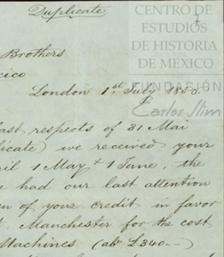 Duplicate
CENTRO DE
ESTUDIOS
DE HISTORIA
DE MÉXICO
FUNDACIÓN
Carlos Slim
Brothers
xico
London 1st July 1850.
last respects of 31 Mai
plicate) we received your
ril 1 May & 1 June, the
e had our last attention
en of your credit in favor
Manchester for the cost
Machines (abt £340.—)